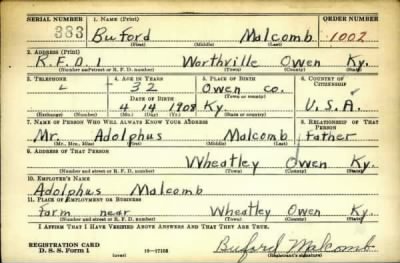 SERIAL NUMBER 1. NAME (Print) ORDER NUMBER
383 Buford Malcomb 1002
(First) (Middle) (Last)
2. ADDRESS (Print)
R.F.D. 1 Worthville Owen Ky.
(Number and street or R. F. D. number) (Town) (County) (State)
3. TELEPHONE 4. AGE IN YEARS 5. PLACE OF BIRTH 6. COUNTRY OF CITIZENSHIP
32 Owen co.
DATE OF BIRTH (Town or county)
4 14 1908 Ky. U.S.A.
(Exchange) (Number) (Mo.) (Day) (Yr.) (State or country)
7. NAME OF PERSON WHO WILL ALWAYS KNOW YOUR ADDRESS 8. RELATIONSHIP OF THAT PERSON
Mr. Adolphus Malcomb Father
(Mr., Mrs., Miss) (First) (Middle) (Last)
9. ADDRESS OF THAT PERSON
Wheatley Owen Ky.
(Number and street or R. F. D. number) (Town) (County) (State)
10. EMPLOYER'S NAME
Adolphus Malcomb
11. PLACE OF EMPLOYMENT OR BUSINESS
Farm near Wheatley Owen Ky.
(Number and street or R. F. D. number) (Town) (County) (State)
I AFFIRM THAT I HAVE VERIFIED ABOVE ANSWERS AND THAT THEY ARE TRUE.
REGISTRATION CARD
D. S. S. Form 1 (over) 16-17105 Buford Malcomb
(Registrant's signature)